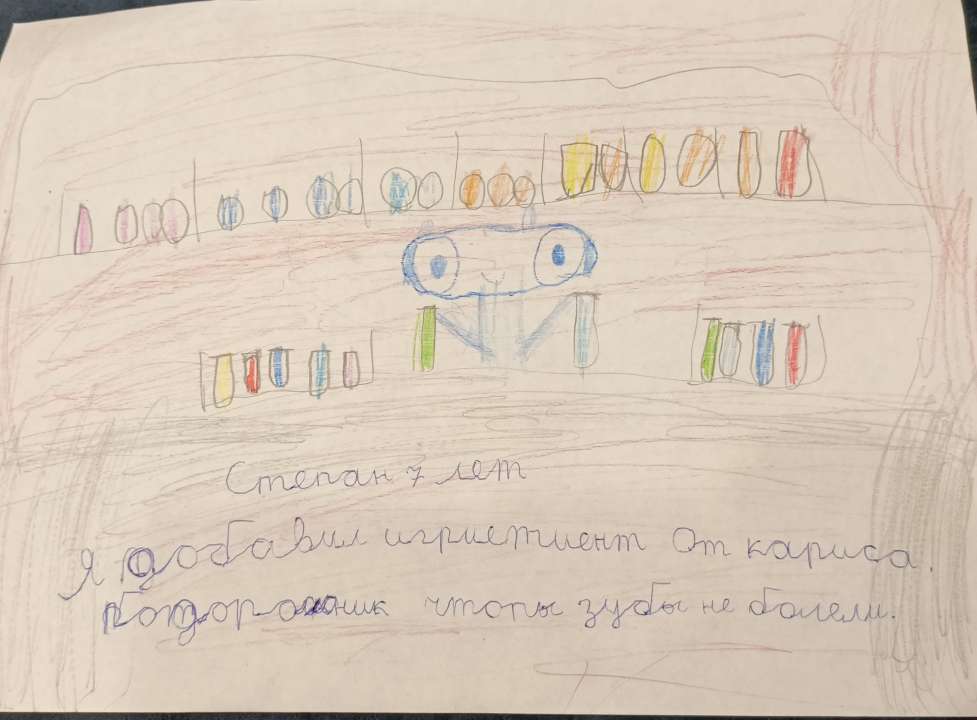 Степан 7 лет
Я добавил игриетиент От кариса.
чтопы зубы не болели.